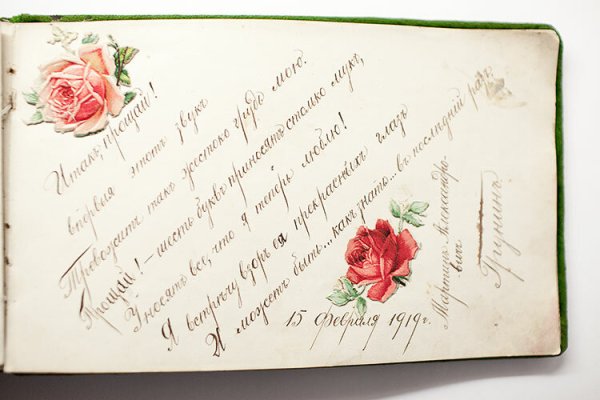 Итакъ, прощай!
впервыя этотъ звукъ
Тревожитъ такъ жестоко грудь мою.
Прощай! – шесть буквъ приносятъ столько мукъ,
Уносятъ все, что я теперь люблю!
Я встрѣчу взоръ ея прекрасныхъ глазъ
И можетъ быть... какъ знать... въ послѣдній разъ
15 Февраля 1919г.
Александро-
вичъ